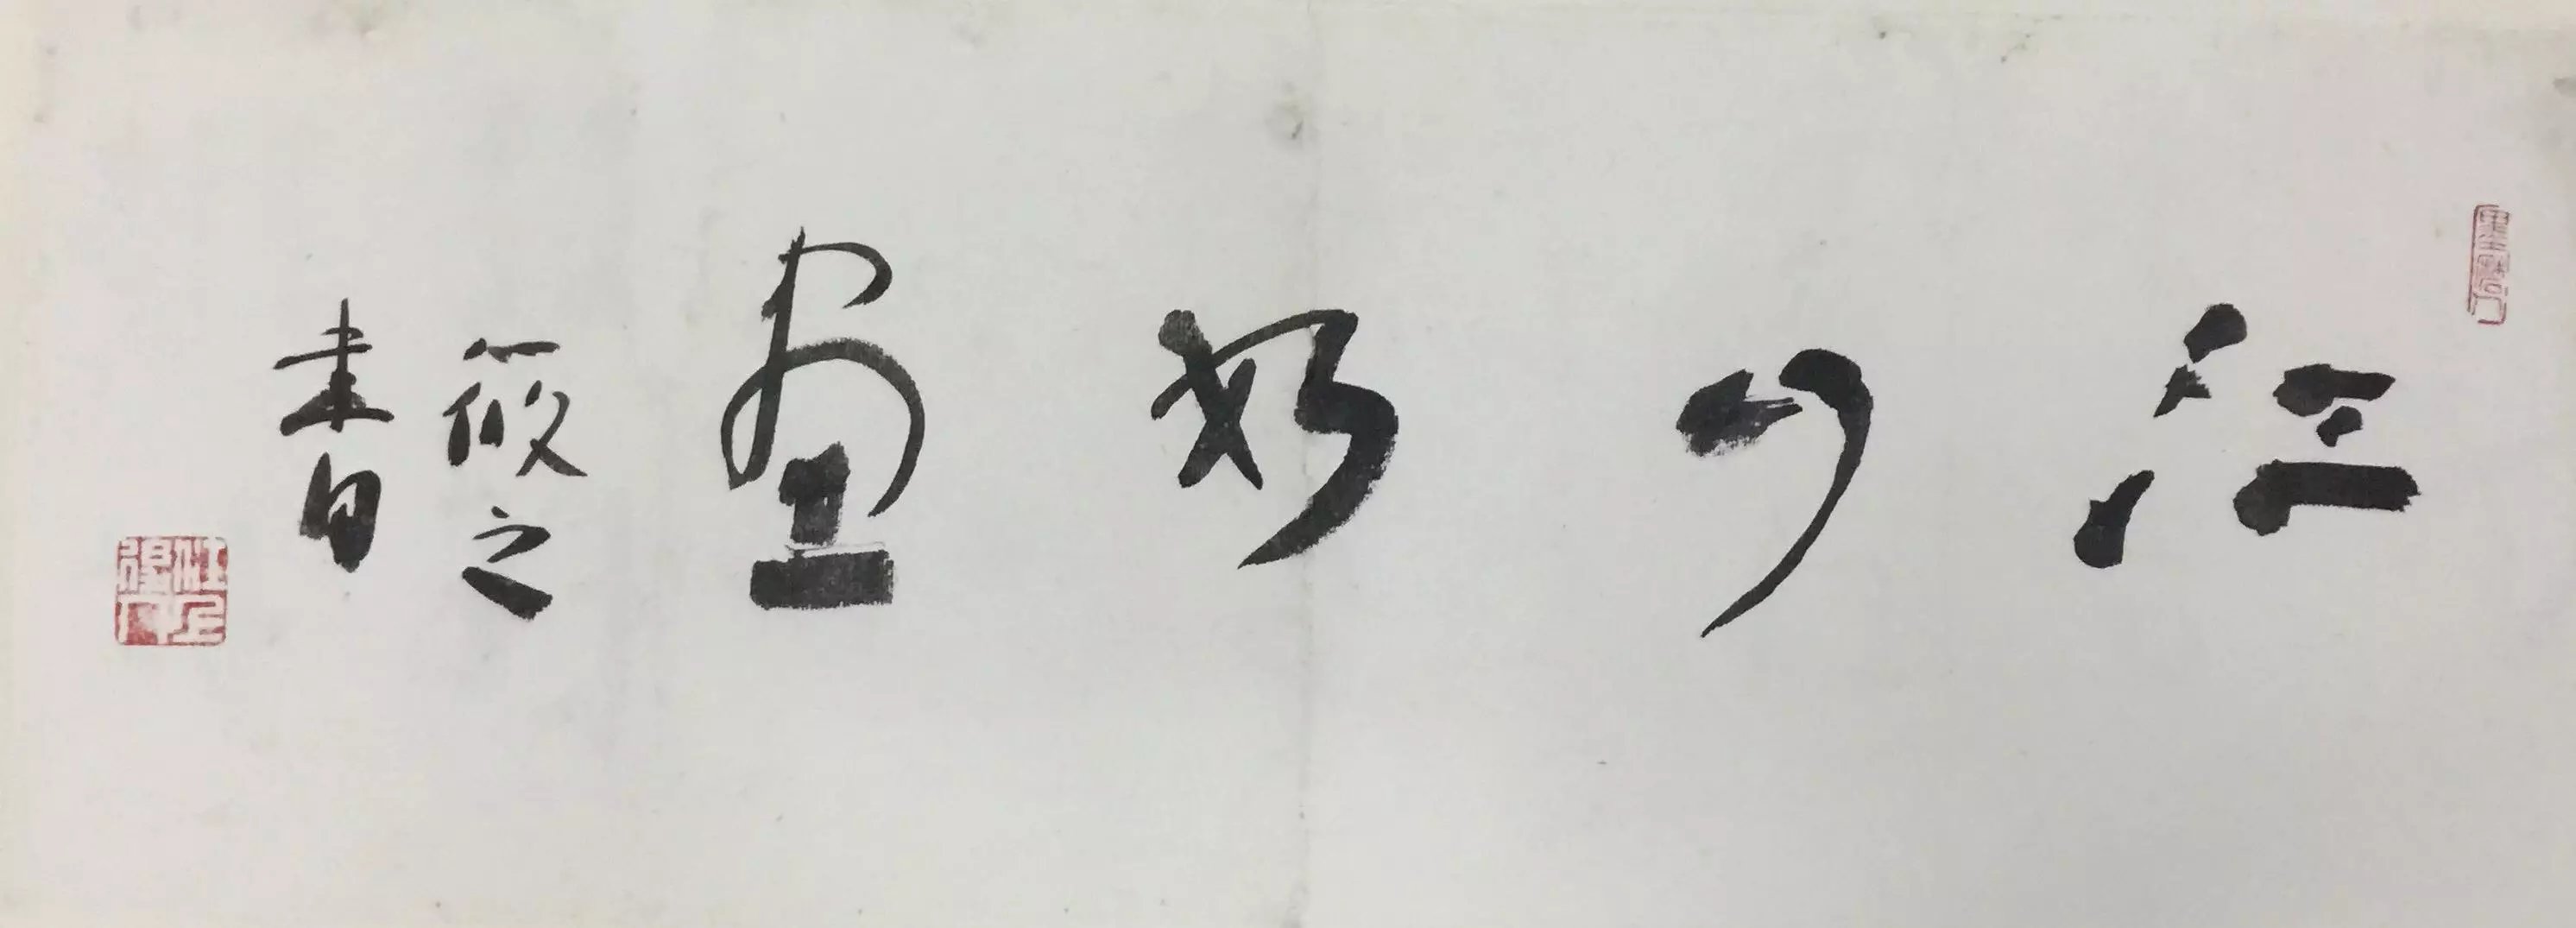 江山如畫
筱之
書